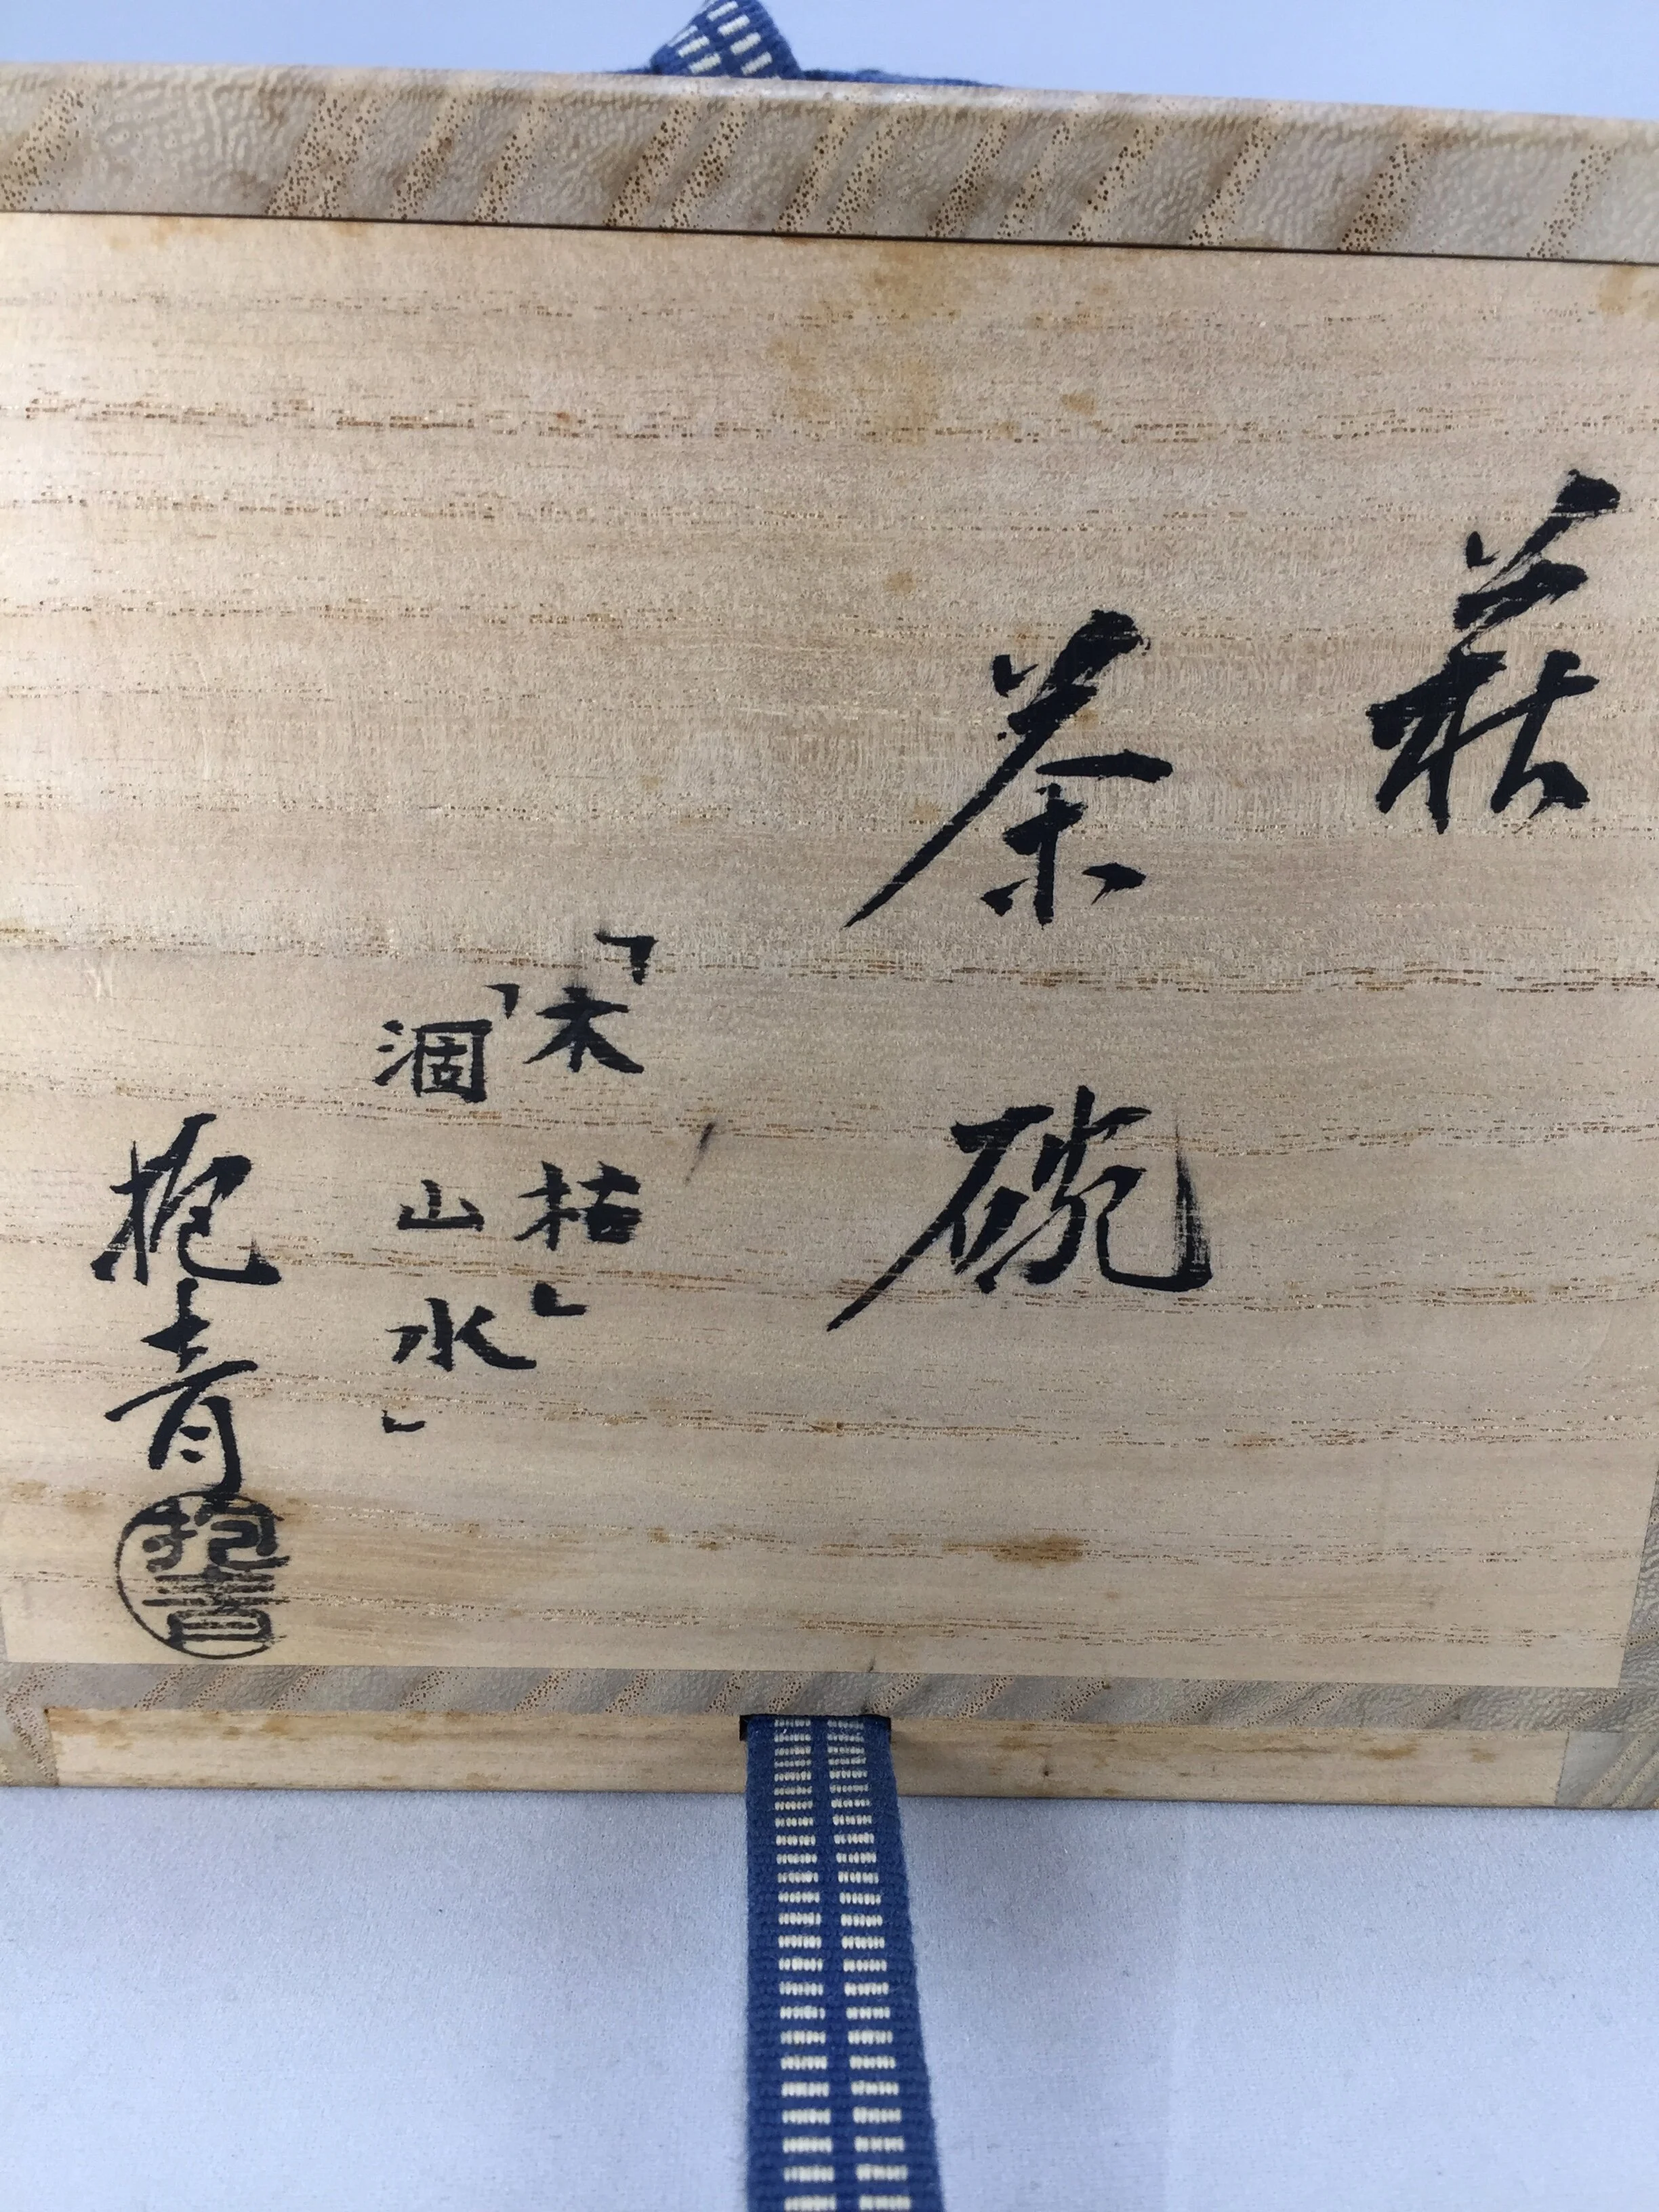 萩
茶碗
「木枯」
「涸山水」
抱青
抱青